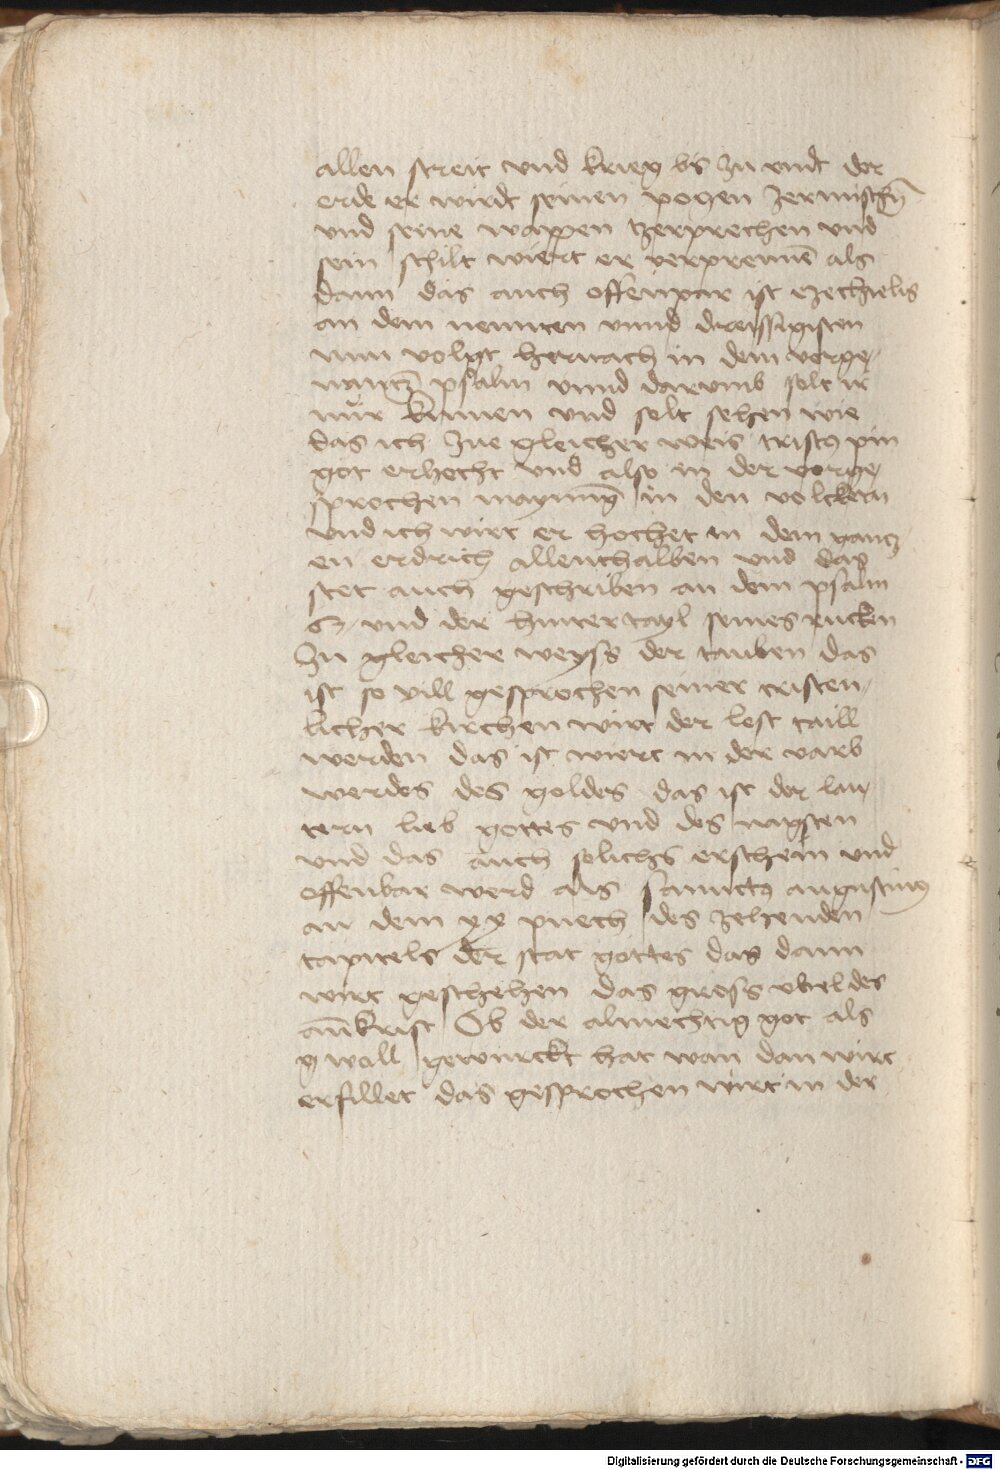 allen streit vnd krieg bis zu endt der
erde er wirdt seinen pogen zermischn̄
vnd seine wappen tzerprechen vnd
sein schilt wiert er verprennē als
dann das auch offenpar ist ezechielis
an dem neunten vnnd dreissigisten
nun volgt hernach in dem verge„
nantn̄ psalm vnnd darumb solt ir
nur kumen vnd solt sehen wie
das ich zue gleicher weis cristus pin
got erhocht vnd also in der vorge„
sprochen maynung in den volckern
vnd ich wirt er hochet in dem gantz„
en erdrich allenthalben vnd das
stet auch geschriben an dem psalm
vnd der hinter tayl seines rucken
Zu gleicher weyss der tauben das
ist so vill gesprochen seiner cristen„
licher kirchen wirt der lest taill
werden das ist wiert in der varb
werdes des goldes das ist der lau„
tern lieb gottes vnd des nagsten
vnd das auch solichs erschein vnd
offenbar werd als sannctus augustinus
an dem xx puech des zehenden
capitels der stat gottes das dann
wirt geschehen das gross vbel des
an̄krist Ob der almechtig got als
woll gewurckt hat wan dan wirt
erfillet das gesprochen wirt in der
Digitalisierung gefördert durch die Deutsche Forschungsgemeinschaft - DFG